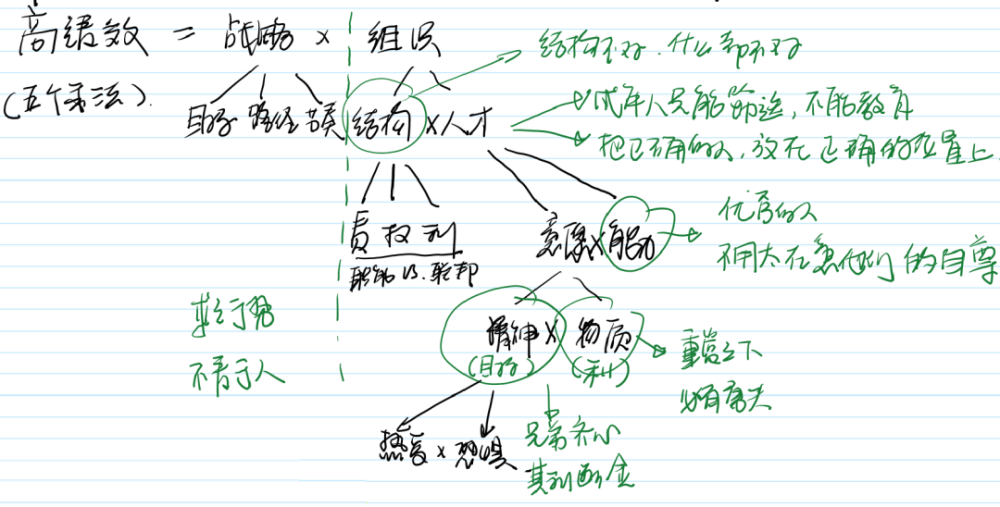 高绩效 = 战略 × 组织
(五个乘法).
目标 路径 节奏 结构 × 人才
结构不对.什么都不对
成年人只能筛选,不能教育
把正确的人,放在正确的位置上.
责 权 利
职能 VS. 联邦
意愿×能力
优秀的人
不用太在意他们的自尊
求于势
不责于人
精神 × 物质
(目标) (利)
重赏之下
必有勇夫
热爱 × 恐惧
兄弟齐心
其利断金